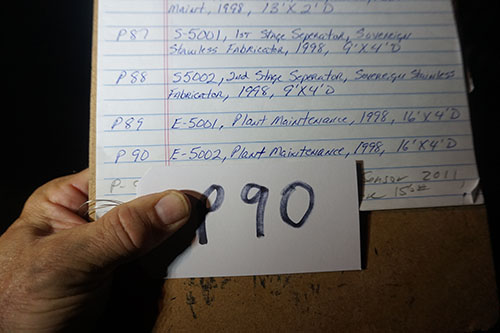 Maint, 1998, 13'X2'D
P87 S-5001, 1st Stage Seperator, Sovereign
Stainless Fabricator, 1998, 9'X4'D
P88 S5002, 2nd Stage Seperator, Sovereign Stainless
Fabricator, 1998, 9'X4'D
P89 E-5001, Plant Maintenance, 1998, 16'X4'D
P90 E-5002, Plant Maintenance, 1998, 16'X4'D
P-9 Sensor 2011
P90